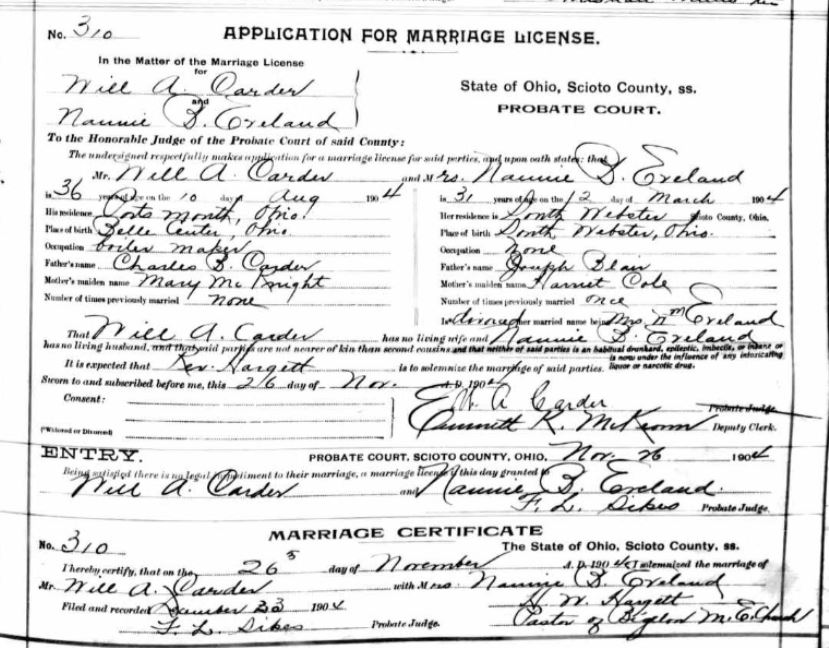 No. 310
APPLICATION FOR MARRIAGE LICENSE.
In the Matter of the Marriage License
for
Will A. Carder
and
Nannie B. Eveland
State of Ohio, Scioto County, ss.
PROBATE COURT.
To the Honorable Judge of the Probate Court of said County:
The undersigned respectfully makes application for a marriage license for said parties, and upon oath states: that
Mr. Will A. Carder and Mrs. Nannie B. Eveland
is 36 years of age on the 10 day of Aug 1904
His residence Portsmouth, Ohio.
Place of birth Belle Center, Ohio
Occupation boiler maker
Father's name Charles B. Carder
Mother's maiden name Mary McKnight
Number of times previously married none
is 31 years of age on the 12 day of March 1904
Her residence is South Webster Scioto County, Ohio.
Place of birth South Webster, Ohio.
Occupation None
Father's name Joseph Blair
Mother's maiden name Harriet Cole
Number of times previously married once
Is divorced her married name being Mrs. Wm Eveland
That Will A. Carder has no living wife and Nannie B. Eveland
has no living husband, and that said parties are not nearer of kin than second cousins and that neither of said parties is an habitual drunkard, epileptic, imbecile, or insane or is now under the influence of any intoxicating liquor or narcotic drug.
It is expected that Rev. Hargett is to solemnize the marriage of said parties.
Sworn to and subscribed before me, this 26 day of Nov. A.D. 1904
W A Carder
Consent: Probate Judge.
Emmitt K. McKeown Deputy Clerk.
(Widowed or Divorced)
ENTRY. PROBATE COURT, SCIOTO COUNTY, OHIO, Nov 26 1904
Being satisfied there is no legal impediment to their marriage, a marriage license is this day granted to
Will A. Carder and Nannie B. Eveland
F. L. Sikes Probate Judge.
MARRIAGE CERTIFICATE
No. 310 The State of Ohio, Scioto County, ss.
I hereby certify, that on the 26 day of November A. D. 1904 I solemnized the marriage of
Mr. Will A. Carder with Mrs. Nannie B. Eveland
Filed and recorded December 23 1904 W. Hargett
F. L. Sikes Probate Judge. Pastor of Bigelow M. E. Church